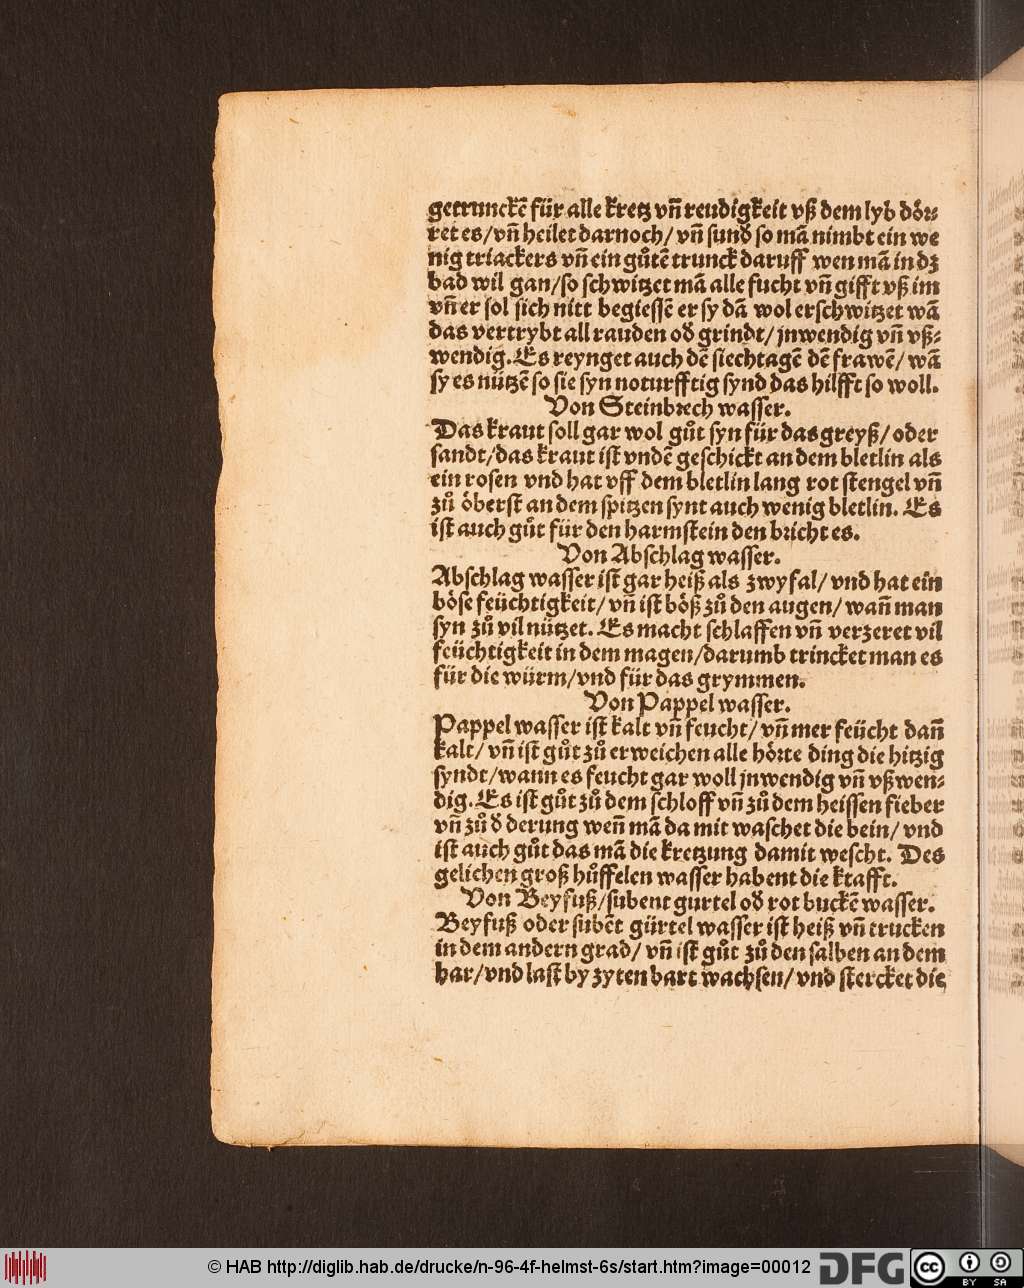 getrunckē für alle kretz vñ reudigkeit vß dem lyb dör⸗
ret es/vñ heilet darnoch/vñ sunð so mā nimbt ein we
nig triackers vñ ein gůtē trunck daruff wen mā in dz
bad wil gan/so schwitzet mā alle sucht vñ gifft vß im
vñ er sol sich nitt begiessē er sy dā wol erschwitzet wā
das vertrybt all rauden oð grindt/jnwendig vñ vß⸗
wendig. Es reynget auch dē siechtagē dē frawē/wā
sy es nützē so sie syn noturfftig synd das hilfft so woll.
Von Steinbrech wasser.
Das kraut soll gar wol gůt syn für das greyß/oder
sandt/das kraut ist vndē geschickt an dem bletlin als
ein rosen vnd hat vff dem bletlin lang rot stengel vñ
zů öberst an dem spitzen synt auch wenig bletlin. Es
ist auch gůt für den harmstein den bricht es.
Von Abschlag wasser.
Abschlag wasser ist gar heiß als zwyfal/vnd hat ein
böse feüchtigkeit/vñ ist böß zů den augen/wañ man
syn zů vil nützet. Es macht schlaffen vñ verzeret vil
feüchtigkeit in dem magen/darumb trincket man es
für die würm/vnd für das grymmen.
Von Pappel wasser.
Pappel wasser ist kalt vñ feucht/vñ mer feücht dañ
kalt/vñ ist gůt zů erweichen alle hörte ding die hitzig
syndt/wann es feucht gar woll jnwendig vñ vßwen⸗
dig. Es ist gůt zů dem schloff vñ zů dem heissen fieber
vñ zů ð derung weñ mā da mit waschet die bein/vnd
ist auch gůt das mā die kretzung damit wescht. Des
gelichen groß hůffelen wasser habent die ktafft.
Von Beyfuß/subent gurtel oð rot buckē wasser.
Beyfuß oder subēt gürtel wasser ist heiß vñ trucken
in dem andern grad/vñ ist gůt zů den salben an dem
har/vnd last by zyten bart wachsen/vnd stercket die
© HAB http://diglib.hab.de/drucke/n-96-4f-helmst-6s/start.htm?image=00012
DFG
cc BY SA